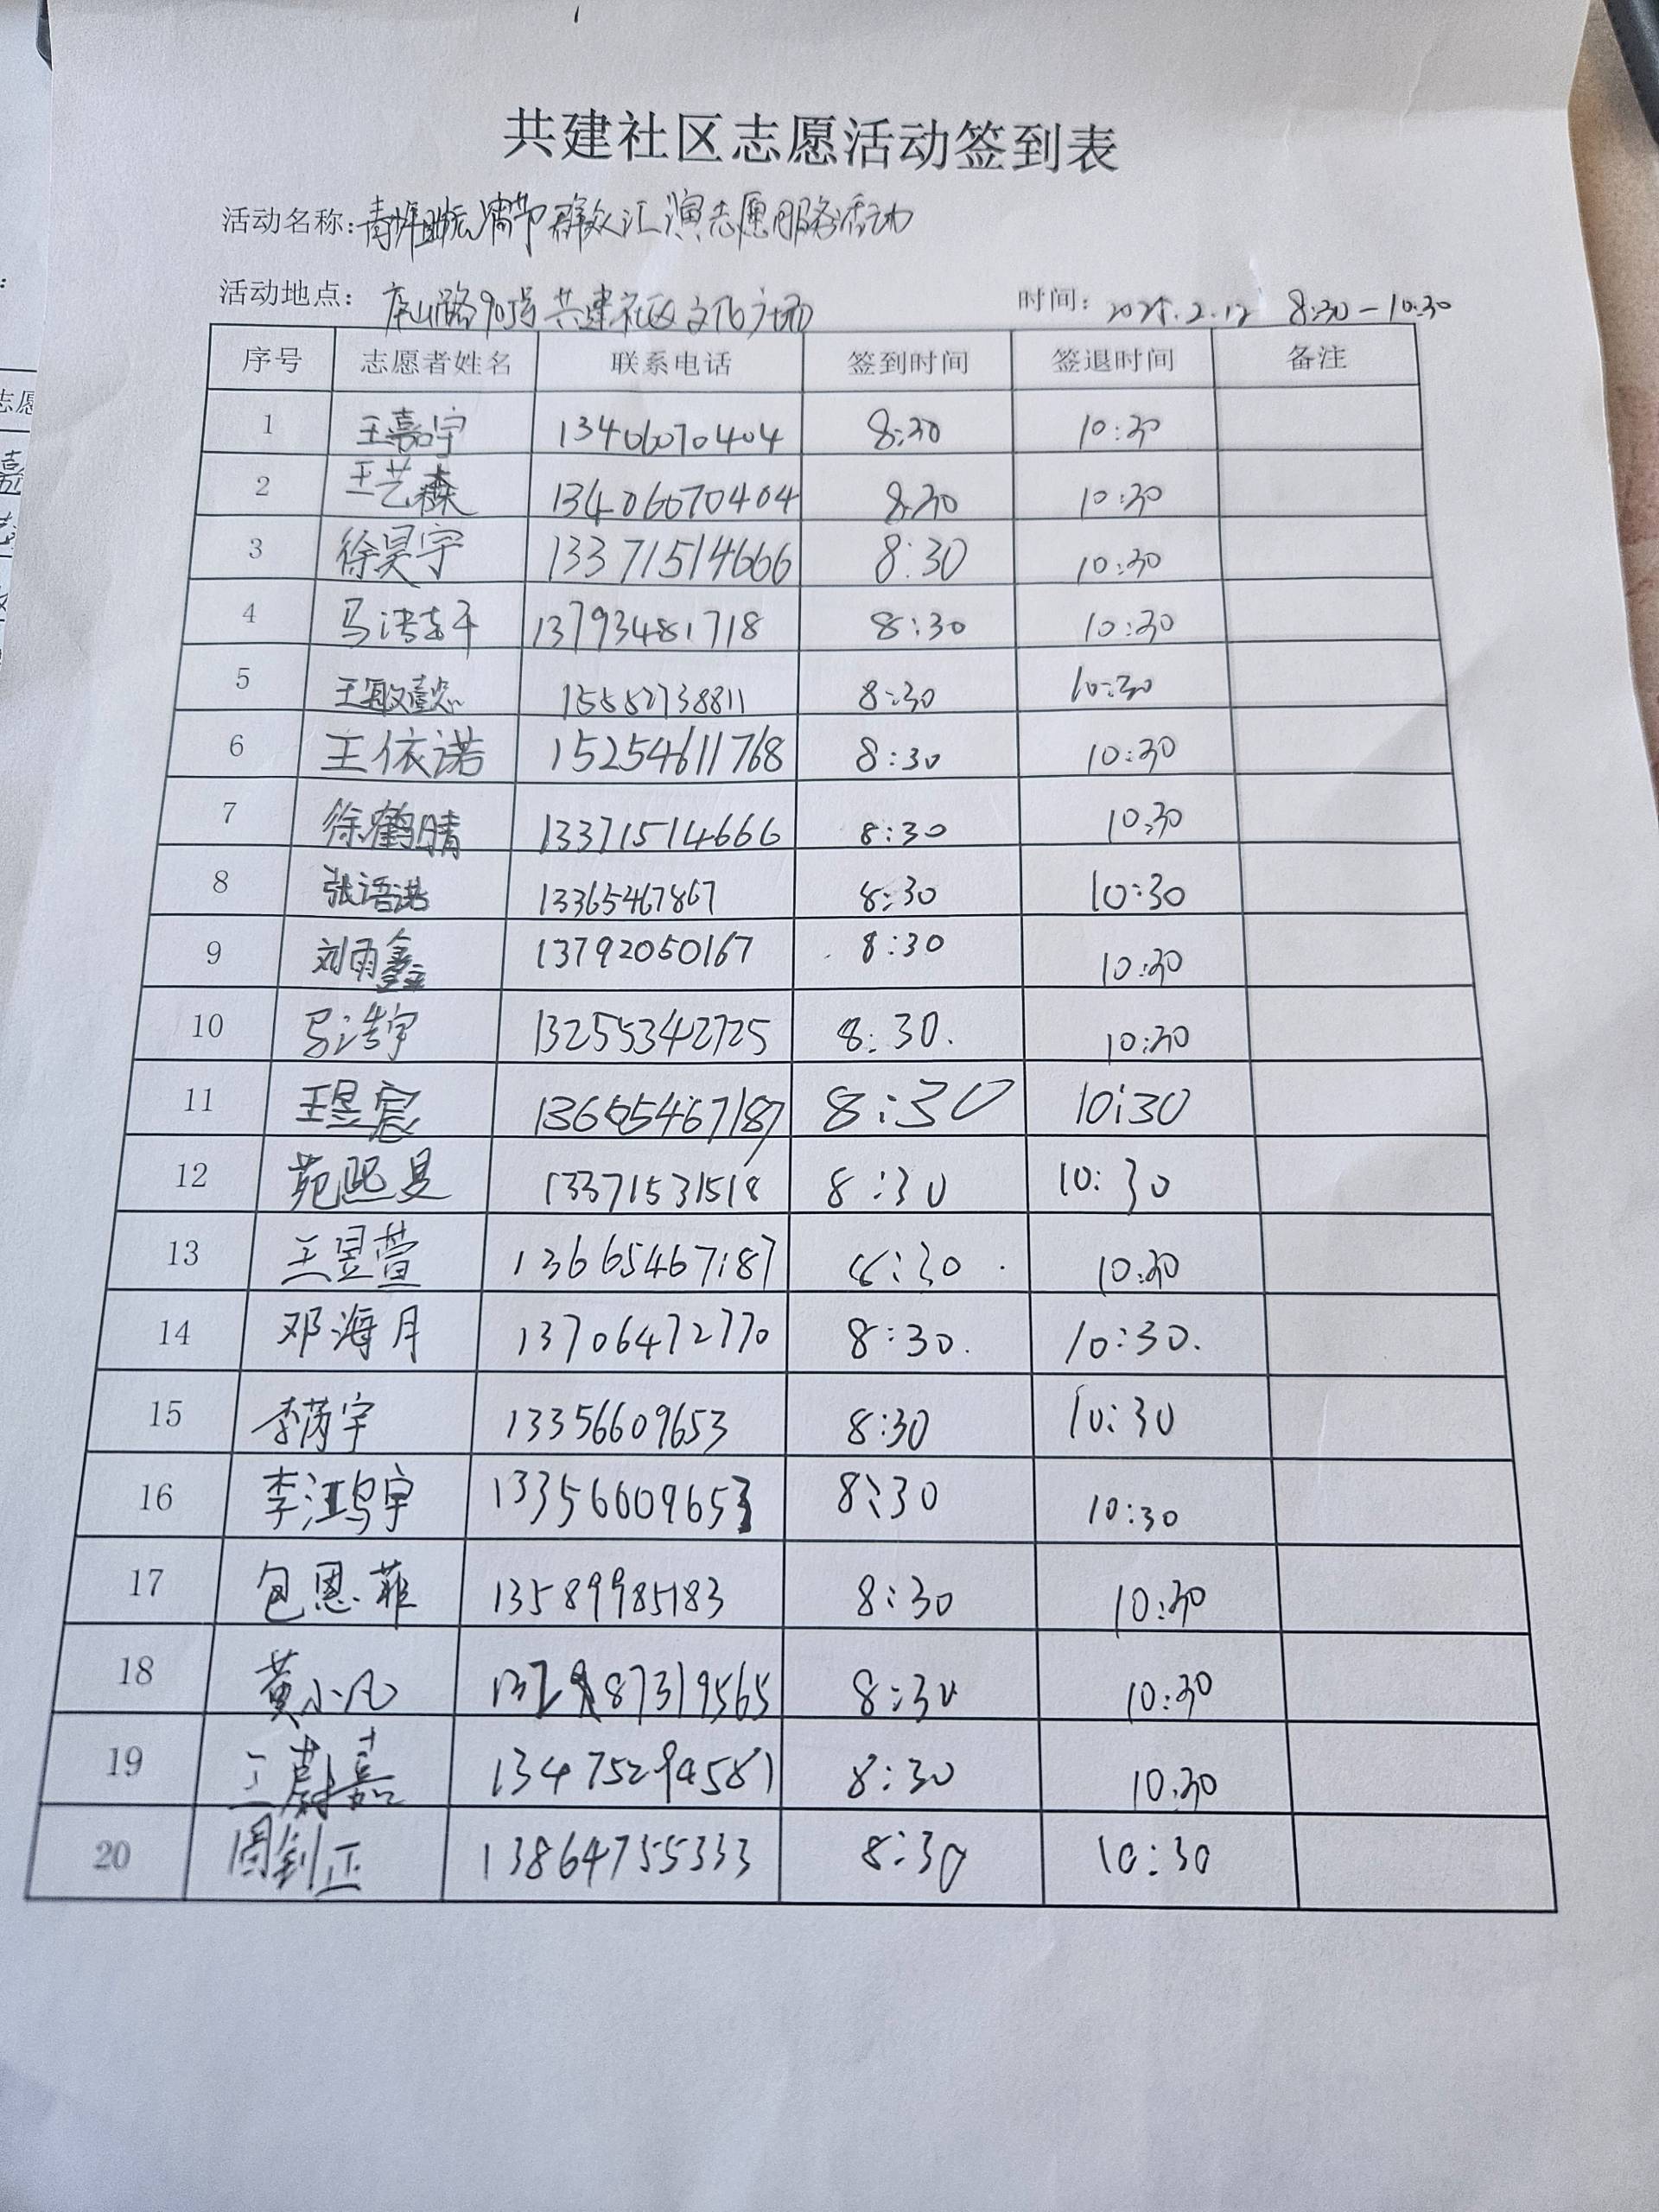 共建社区志愿活动签到表
活动名称:青年助元宵节群众汇演志愿服务活动
活动地点: 庐山路905号共建社区文化广场 时间: 2025.2.12 8:30-10:30
序号 志愿者姓名 联系电话 签到时间 签退时间 备注
1 王嘉宇 13406070404 8:30 10:30
2 王艺森 13406070404 8:30 10:30
3 徐昊宇 13371514666 8:30 10:30
4 马 13793481718 8:30 10:30
5 王敬懿 15552738811 8:30 10:30
6 王依诺 15254611768 8:30 10:30
7 徐鹤晴 13371514666 8:30 10:30
8 张语诺 13365467867 8:30 10:30
9 刘雨鑫 13792050167 8:30 10:30
10 马浩宇 13255342725 8:30. 10:30
11 王昱宸 13665467187 8:30 10:30
12 苑熙是 13371531518 8:30 10:30
13 王昱萱 13665467187 8:30 10:30
14 邓海月 13706472770 8:30. 10:30.
15 李芮宇 13356609653 8:30 10:30
16 李江鸿宇 13356609653 8:30 10:30
17 包恩菲 13589985183 8:30 10:30
18 黄小凡 87319565 8:30 10:30
19 王蔚嘉 13475294581 8:30 10:30
20 周钊正 13864755333 8:30 10:30
志愿
嘉